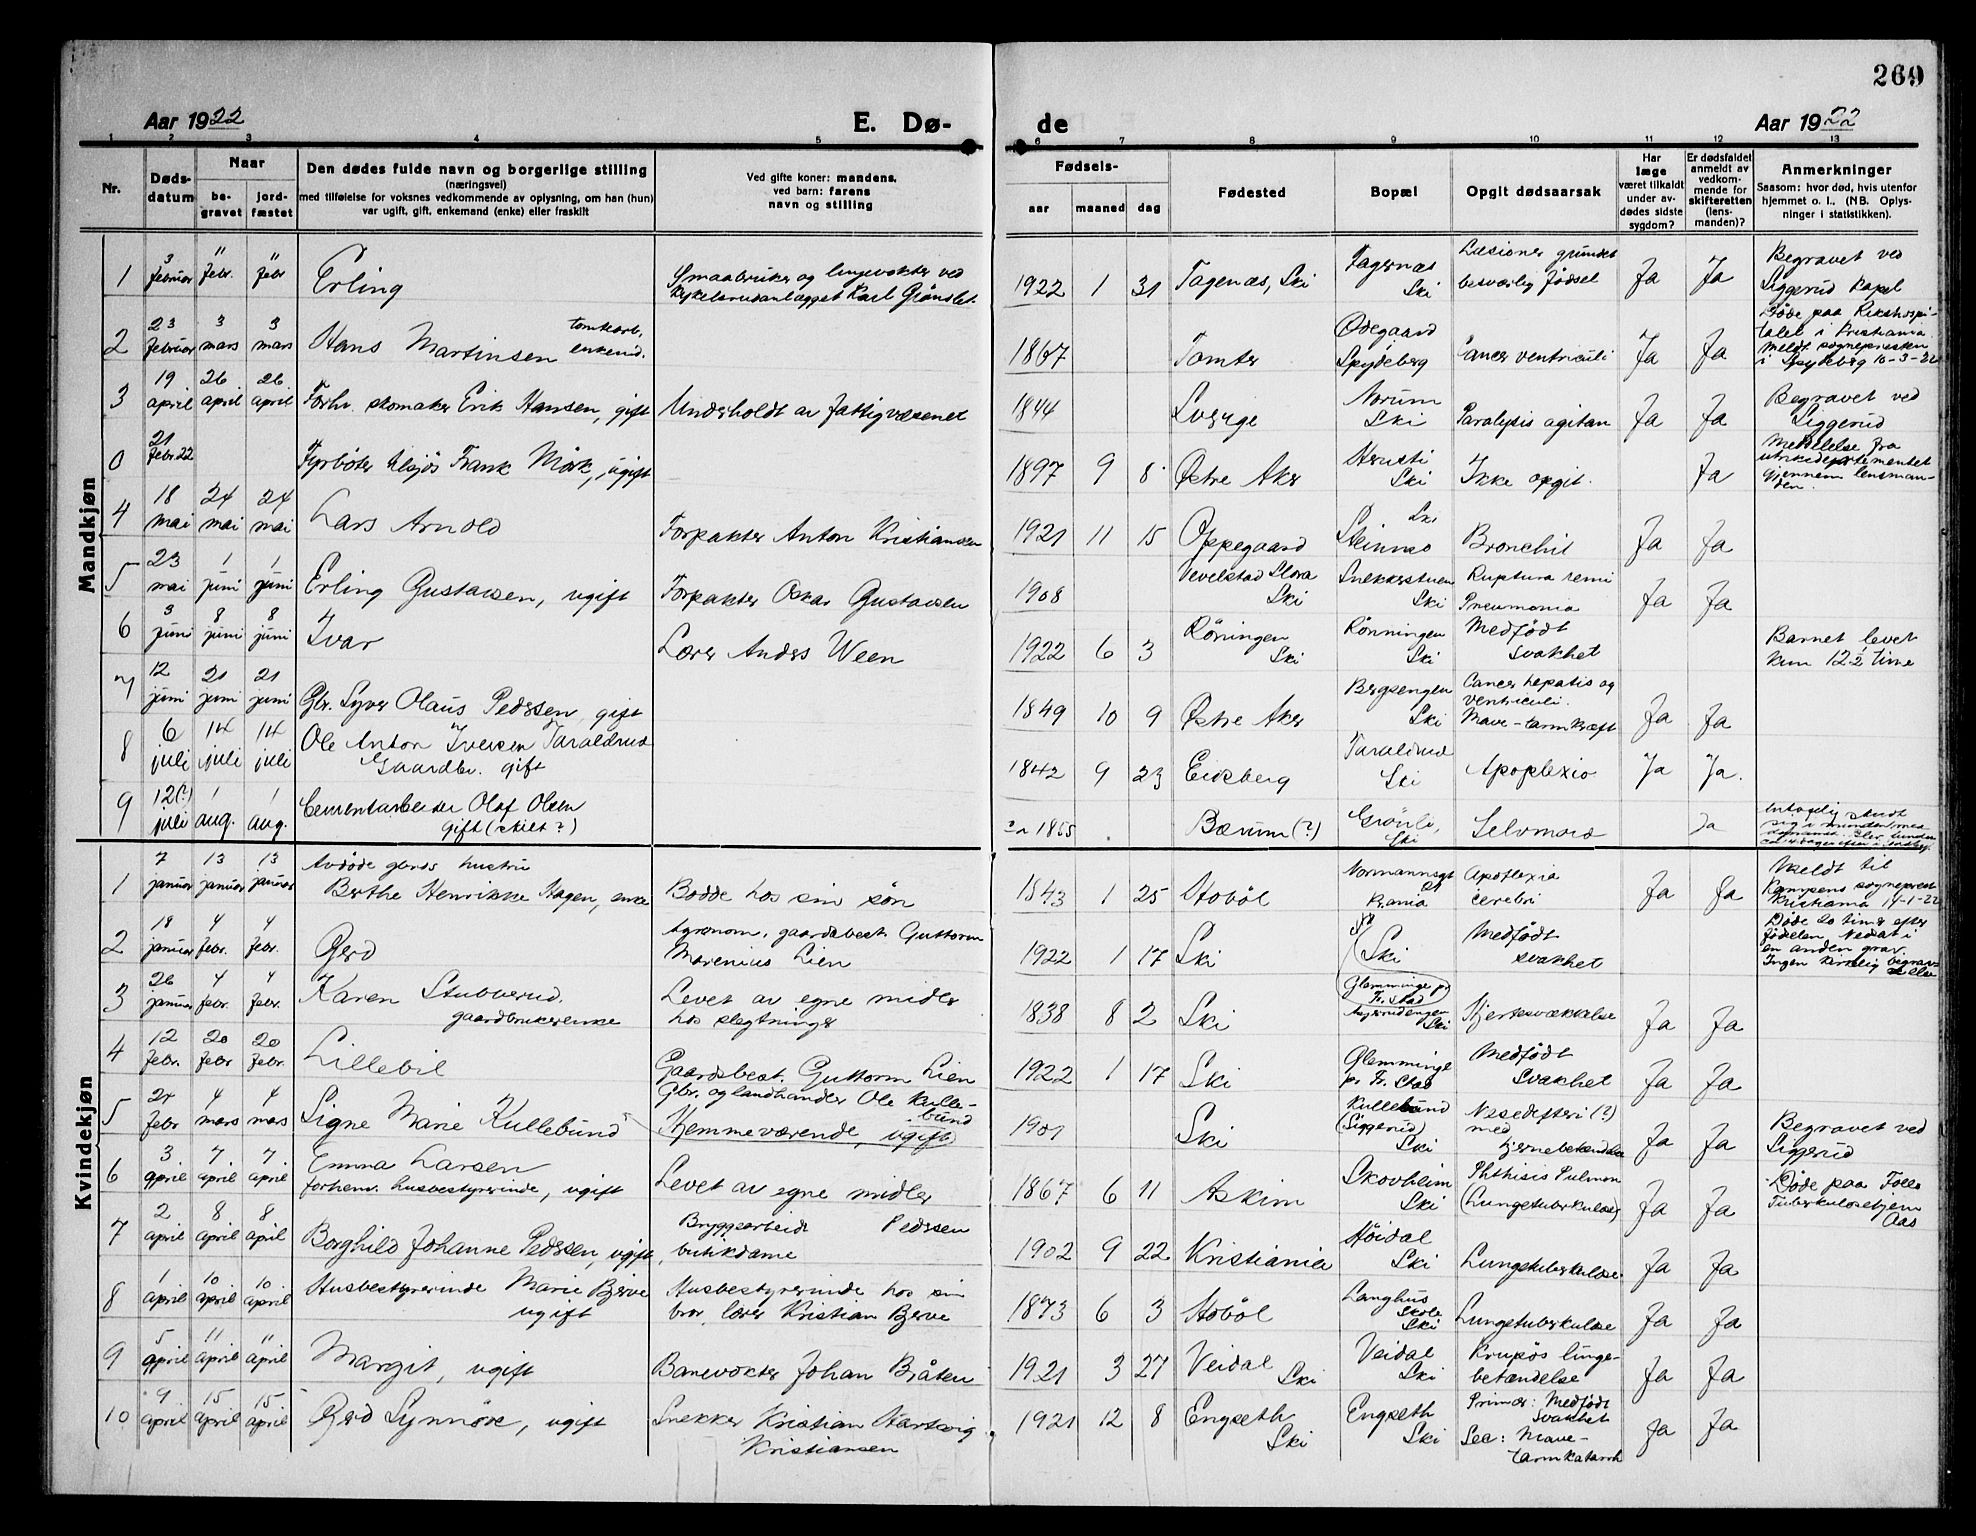 269
Aar 1922 E. Dø- de Aar 1922
1 2 3 4 5 6 7 8 9 10 11 12 13
Nr. Døds-datum Naar be-gravet jord-fæstet Den dødes fulde navn og borgerlige stilling (næringsvei) med tilføielse for voksnes vedkommende av oplysning, om han (hun) var ugift, gift, enkemand (enke) eller fraskilt Ved gifte koner: mandens, ved barn: farens navn og stilling Fødsels- aar maaned dag Fødested Bopæl Opgit dødsaarsak Har læge været tilkaldt under av-dødes sidste sygdom? Er dødsfaldet anmeldt av vedkom-mende for skifteretten (lens-manden)? Anmerkninger Saasom: hvor død, hvis utenfor hjemmet o. l., (NB. Oplys-ninger i statistikken).
Mandkjøn
1 3 februar 11 febr. 11 febr Erling Smaabruker og linjevokter ved Kykelsrudanlægget Karl Grönslet. 1922 1 31 Tagenæs, Ski Tagernæs Ski Læsioner grundet besværlig fødsel Ja Ja Begravet ved Siggerud kapel
2 23 februar 3 mars 3 mars Hans Martinsen tomtearb. enkem. 1867 Tomter Ødegaard Spydeberg Cancer ventriculi Ja Ja Døde paa Rikshospi-talet i Kristiania meldt sognepresten i Spydeberg 10-3-22
3 19 april 26 april 26 april Forhv. skomaker Erik Hansen, gift Underholdt av fattigvæsenet 1844 Sverige Norum Ski Paralysis agitan Ja Ja Begravet ved Siggerud
0 21 febr. 22 Fyrböter tilsjös Frank Mörk, ugift 1897 9 8 Østre Aker Ski Ikke opgit. Ja Meddelelse fra utriksdepartementet gjennem lensman-den.
4 18 mai 24 mai 24 mai Lars Arnold Forpakter Anton Kristiansen 1921 11 15 Oppegaard Ski Steinmo Bronchit Ja Ja
5 23 mai 1 juni 1 juni Erling Gustavsen, ugift Forpakter Oskar Gustavsen 1908 Vevelstad Stora Ski Snekkerstuen Ski Ruptura reni Pneumonia Ja Ja
6 3 juni 8 juni 8 juni Ivar Lærer Anders Ween 1922 6 3 Röningen Ski Rönningen Ski Medfödt svakhet Barnet levet kun 12½ time
7 12 juni 21 juni 21 juni Gbr. Syver Olaus Pedersen, gift 1849 10 9 Østre Aker Bergsengen Ski Cancer hepatis og ventriculi. Mave-tarmkræft Ja Ja
8 6 juli 14 juli 14 juli Ole Anton Iversen Taraldrud Gaardbr. gift 1842 9 23 Eidsberg Taraldrud Ski Apoplexio Ja Ja.
9 12(?) juli 1 aug. 1 aug. Cementarbeider Olaf Olsen gift (skilt?) 1865 Bærum (?) Grönli, Ski Selvmord Ja
Kvindekjøn
1 7 januar 13 januar 13 januar Avdöde gbrds hustru Berthe Henrikke Hagen, enke Bodde hos sin sön 1843 1 25 Hobøl Normannsgt Kr.ania Apoplexia cerebri Ja Ja Meldt til Kampens sogneprest Kristiania 14-1-22
2 18 januar 4 febr. 4 febr. Gerd Agronom, gaardsbest. Guttorm Marenius Lien 1922 1 17 Ski Ski Medfödt svakhet Døde 20 timer efter födselen Nedsat i en anden grav. Ingen kirkelig begrav-else
3 26 januar 4 febr. 4 febr. Karen Stubberud. gaardbrukerenke Levet av egne midler hos slegtninger 1838 8 2 Ski Glemminge pr Fr.stad Ski Hjertesvækkelse Ja Ja
4 12 febr. 20 febr 20 febr. Lillebil Gaardsbest. Guttorm Lien 1922 1 17 Ski Glemminge pr Fr.stad Medfödt svakhet Ja Ja
5 24 febr 4 mars 4 mars Signe Marie Kullebund Gbr. og landhandler Ole Kulle-bund Hjemmeværende, ugift 1901 Ski Kullebund (Siggerud) Ski (?) med hjernebetændelse Ja Ja Begravet ved Siggerud
6 3 april 7 april 7 april Emma Larsen forhenv. husbestyrerinde, ugift Levet av egne midler 1867 6 11 Askim Skovheim Ski Phthisis Pulmon (Lungetuberkulose) Ja Ja Døde paa Follo Tuberkulosehjem Aas
7 2 april 8 april 8 april Borghild Johanne Pedersen, ugift, Bryggearbeid. Pedersen butikdame 1902 9 22 Kristiania Höidal Ski Lungetuberkulose Ja Ja
8 1 april 10 april 10 april Husbestyrerinde Marie Bjerve ugift Husbestyrerinde hos sin bror, lærer Kristian Bjerve 1873 6 3 Hobøl Langhus Skole Ski Lungetuberkulose Ja Ja
9 5 april 11 april 11 april Margit, ugift Banevokter Johan Bråten 1921 3 27 Veidal Ski Veidal Ski Krupøs lunge-betændelse Ja Ja
10 9 april 15 april 15 april Gerd Synnöve, ugift Snekker Kristian Hartvig Kristiansen 1921 12 8 Engseth Ski Engseth Ski Primær: Medfödt svakhet Sec: Mave-tarmkatarrh Ja Ja